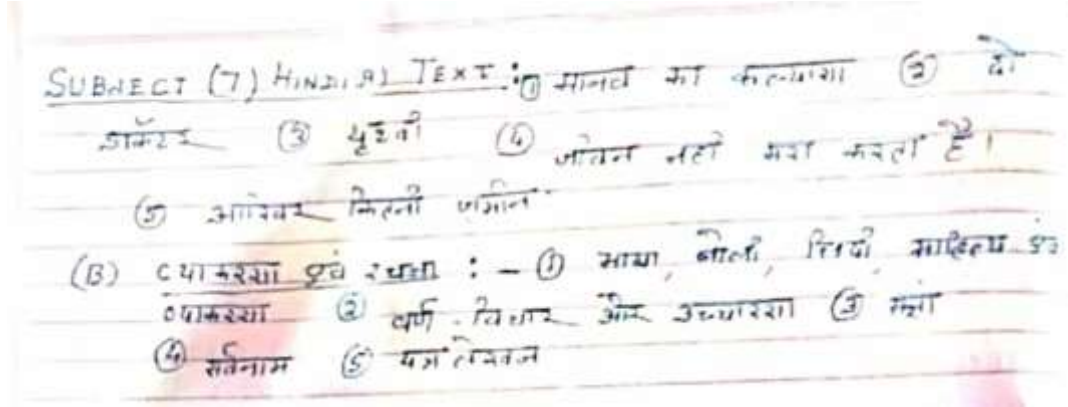 SUBJECT (7) HINDI A) TEXT :- ① मानव का कल्याण ② दो
डॉक्टर ③ पृथ्वी ④ जीवन नहीं मरा करता है।
⑤ आखिर कितनी जमीन
(B) व्याकरण एवं रचना : - ① भाषा, बोली, लिपी, साहित्य एवं
व्याकरण ② वर्ण विचार और उच्चारण ③
④ सर्वनाम ⑤ पत्र लेखन